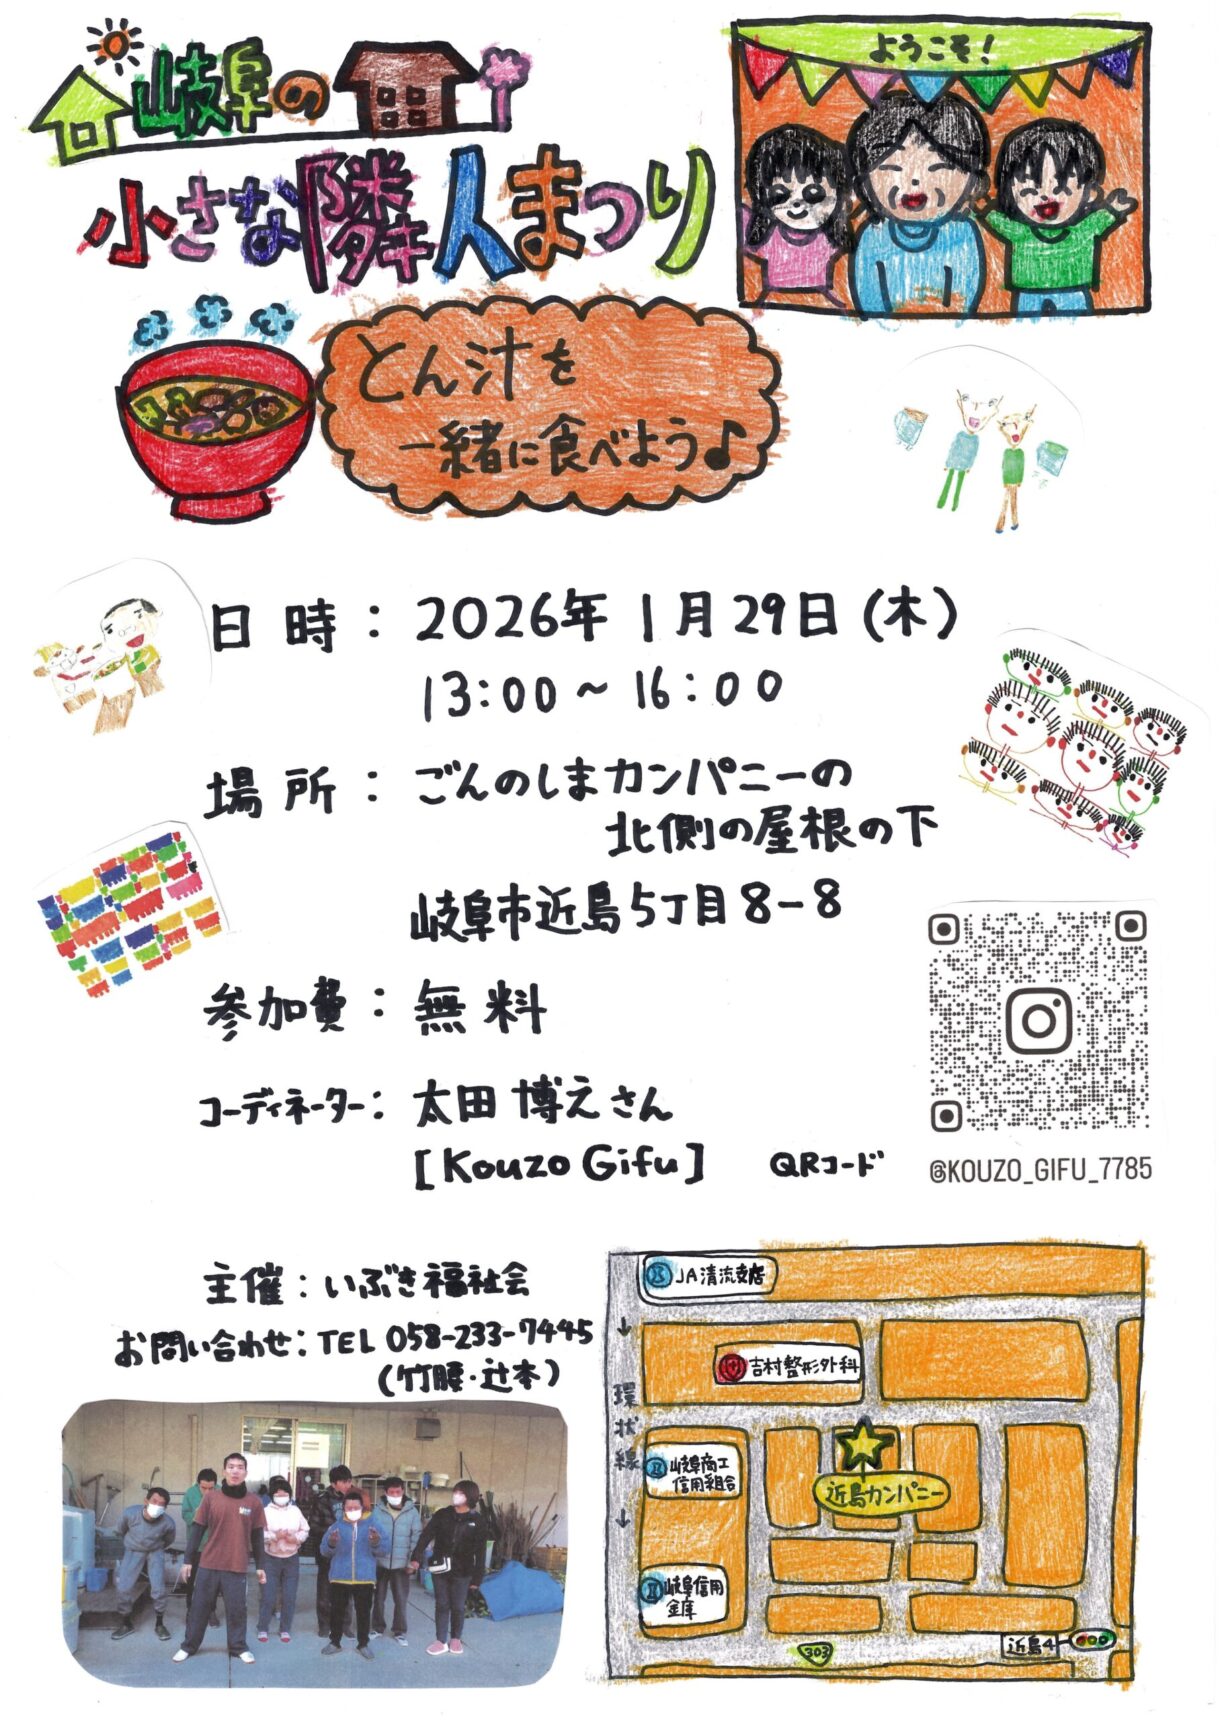 ようこそ!
岐阜の
小さな隣人まつり
とん汁を
一緒に食べよう♪
日時：2026年1月29日(木)
13:00～16:00
場所：ごんのしまカンパニーの
北側の屋根の下
岐阜市近島5丁目8-8
参加費：無料
コーディネーター：太田博之さん
[Kouzo Gifu]
QRコード
@KOUZO_GIFU_7785
主催：いぶき福祉会
お問い合わせ：TEL 058-233-7445
(竹腰・辻本)
JA清流支店
吉村整形外科
環状線
岐阜商工
信用組合
近島カンパニー
岐阜信用
金庫
303
近島4